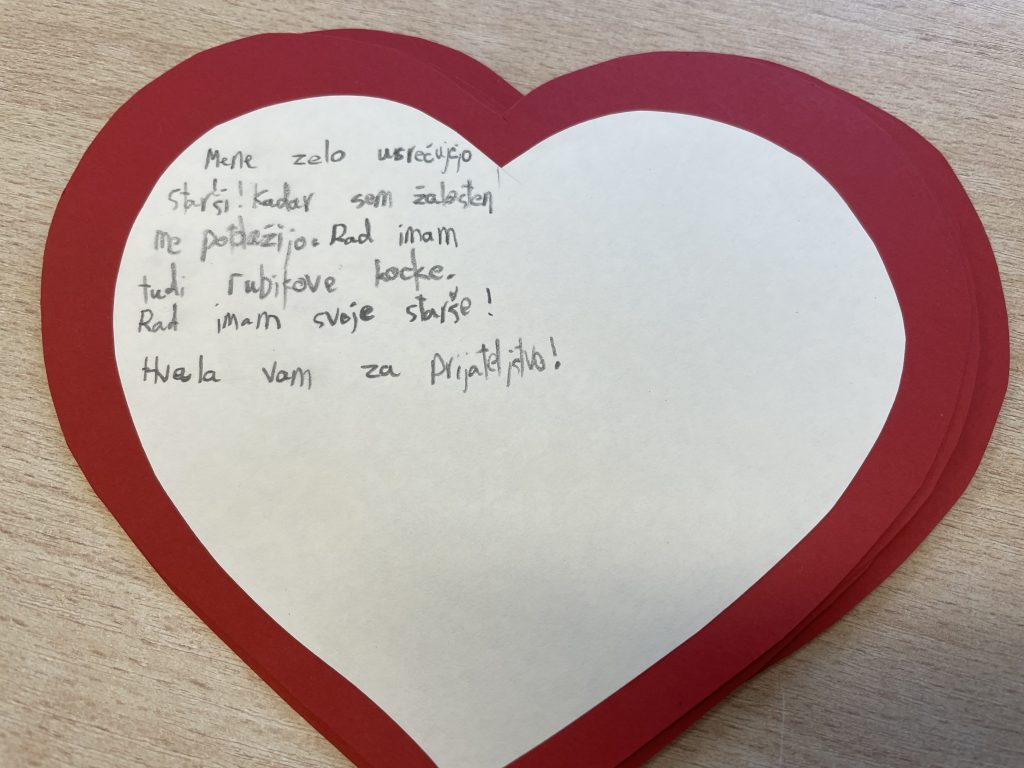 Mene zelo usrečujejo
starši! Kadar sem žalosten
me potolažijo. Rad imam
tudi rubikove kocke.
Rad imam svoje starše!
Hvala vam za prijateljstvo!